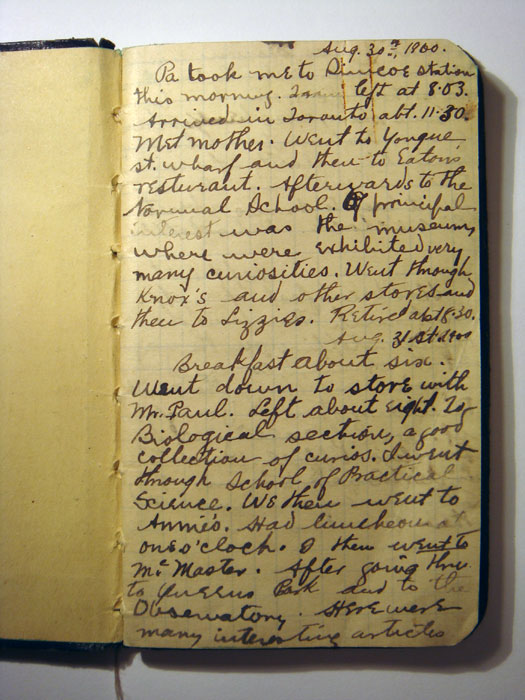 Aug. 30th, 1900.
Pa took me to Simcoe station
this morning. Train left at 8.03.
Arrived in Toronto abt. 11.30.
Met mother. Went to Yongue
st. wharf and then to Eaton's
resturant. Afterwards to the
Normal School. Of principal
interest was the museum,
where were exhibited very
many curiosities. Went through
Knox's and other stores and
then to Lizzies. Retired abt 8.30.
Aug. 31st. 1900
Breakfast about six.
Went down to store with
Mr. Paul. Left about eight. To
Biological section, a good
collection of curios. I went
through School of Practical
Science. We then went to
Annie's. Had luncheon at
one o'clock. I then went to
Mc Master. After going thru
to Queens Park and to the
Observatory. Here were
many interesting articles